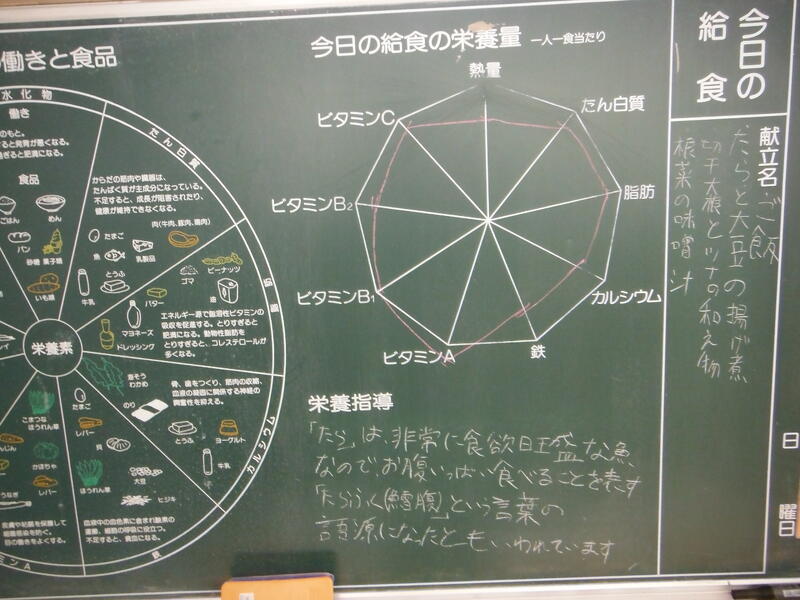 今日の
給食
献立名
ご飯
たらと大豆の揚げ煮
切干大根とツナの和え物
根菜の味噌汁
日
曜日
今日の給食の栄養量 一人一食当たり
熱量
たん白質
脂肪
カルシウム
鉄
ビタミンA
ビタミンB1
ビタミンB2
ビタミンC
栄養指導
「たら」は、非常に食欲旺盛な魚
なのでお腹いっぱい食べることを表す
「たらふく(鱈腹)」という言葉の
語源になったともいわれています
働きと食品
水化物
働き
のもと。
すると発育が悪くなる。
すぎると肥満になる。
食品
ごはん
めん
パン
砂糖 菓子類
いも類
たん白質
からだの筋肉や臓器は、
たんぱく質が主成分になっている。
不足すると、成長が阻害されたり、
健康が維持できなくなる。
肉(牛肉、豚肉、鶏肉)
たまご
魚
乳製品
とうふ
牛乳
脂質
ゴマ
ピーナッツ
バター
油
マヨネーズ
ドレッシング
エネルギー源で脂溶性ビタミンの
吸収を促進する。とりすぎると
肥満になる。動物性脂肪を
とりすぎると、コレステロールが
多くなる。
栄養素
カルシウム
骨、歯をつくり、筋肉の収縮、
血液の凝固に関係する神経の
興奮性を抑える。
生そう
わかめ
のり
とうふ
ヨーグルト
牛乳
鉄
たまご
レバー
貝
ほうれん草
大豆
ヒジキ
血液中の血色素に含まれ酸素の
運搬、細胞の呼吸に役立つ。
不足すると、貧血になる。
ミンA
こまつな
ほうれん草
にんじん
かぼちゃ
うなぎ
レバー
皮膚や粘膜を保護して
細菌感染を防ぐ。
目の働きをよくする。